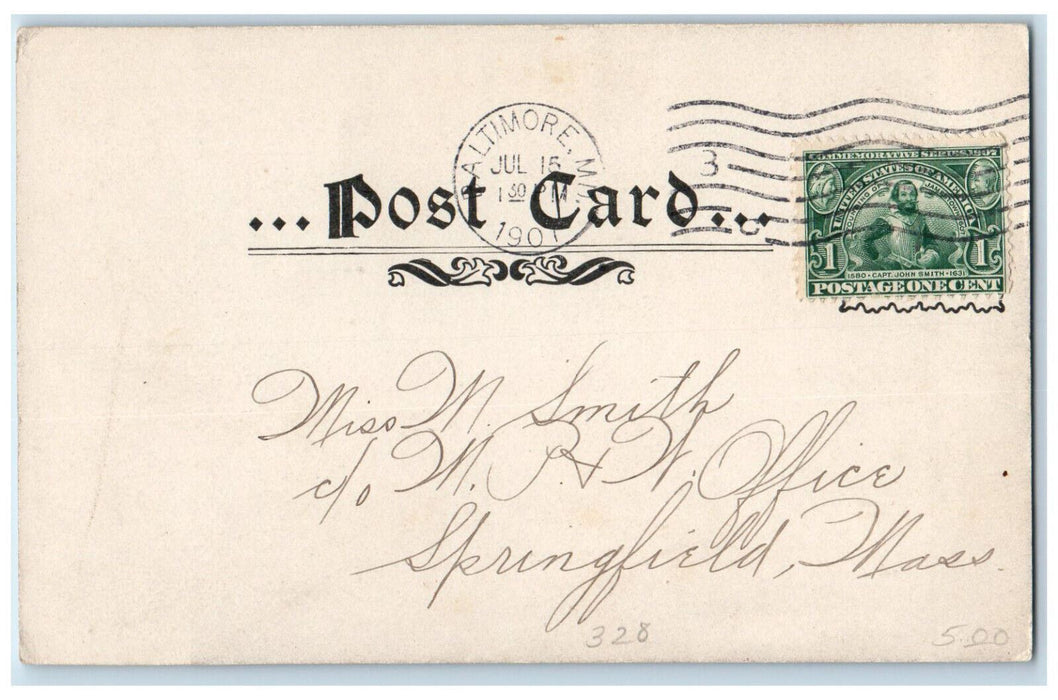 BALTIMORE, MD.
JUL 15
1 30 PM
190
3
...Post Card...
COMMEMORATIVE SERIES 1907
UNITED STATES OF AMERICA
FOUNDING OF JAMESTOWN
1 1
1580 · CAPT. JOHN SMITH · 1631
POSTAGE ONE CENT
Miss M. Smith
c/o M. P. & W. Office
Springfield, Mass.
328
5.00